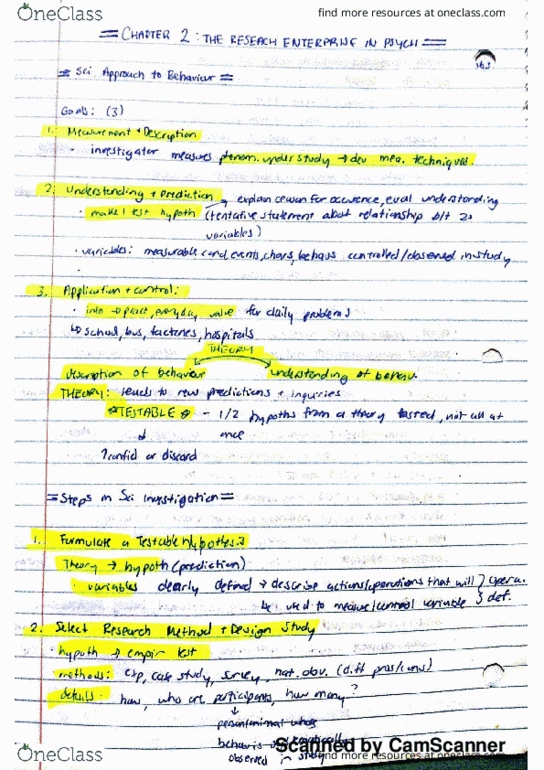 OneClass
find more resources at oneclass.com
= CHAPTER 2: THE RESEACH ENTERPRISE IN PSYCH =
= Sci Approach to Behaviour =
Goals: (3)
1. Measurement + Description
• investigator measures phenom. under study → dev mea. techniques.
2. Understanding + prediction → explain reason for occurence, eval understanding
• make/test hypoth (tentative statement about relationship b/t 2+
variables)
• variables: measurable cond, events, chars, behavs controlled/observed in study
3. Application + control:
• info → pract, everyday value for daily problems
↳ school, bus, factories, hospitals
THEORY
description of behaviour understanding of behav.
THEORY: leads to new predictions + inquiries
*TESTABLE* - 1/2 hypoths from a theory tested, not all at
↓ once
↑confid or discard
= Steps in Sci Investigation =
1. Formulate a Testable hypothesis
Theory → hypoth (prediction)
• variables clearly defined → describe actions/operations that will } opera.
be used to measure/control variable } def.
2. Select Research Method + Design Study
• hypoth → empir test
methods: exp, case study, survey, nat. obv. (diff pros/cons)
details: how, who are participants, how many?
↓
person/animal whose
behav is systematically
observed in study
Scanned by CamScanner
OneClass
find more resources at oneclass.com